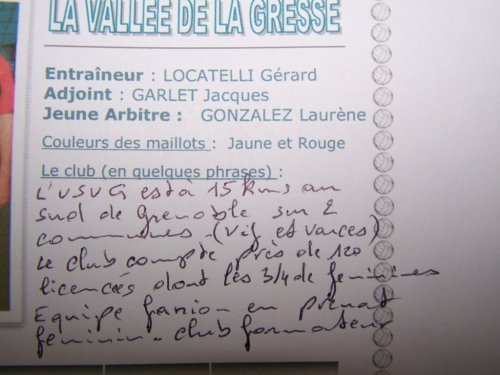 LA VALLÉE DE LA GRESSE
Entraîneur : LOCATELLI Gérard
Adjoint : GARLET Jacques
Jeune Arbitre : GONZALEZ Laurène
Couleurs des maillots : Jaune et Rouge
Le club (en quelques phrases) :
L'USVG est à 15 kms au
sud de Grenoble sur 2
communes (Vif et Varces)
Le club compte près de 120
licenciés dont les 3/4 de féminines
Equipe fanion en prénat
féminin - club formateur